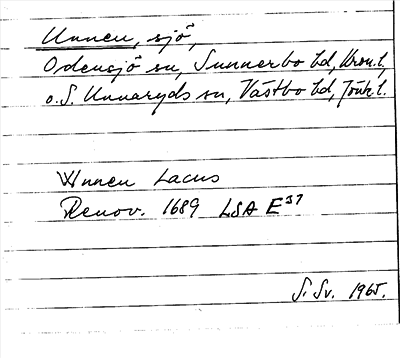 Unnen, sjö,
Odensjö sn, Sunnerbo hd, Kron. l,
o. S. Unnaryds sn, Västbo hd, Jönk l.
Wnnen Lacus
Renov. 1689 LSA E³⁷
S. Sv. 1965.